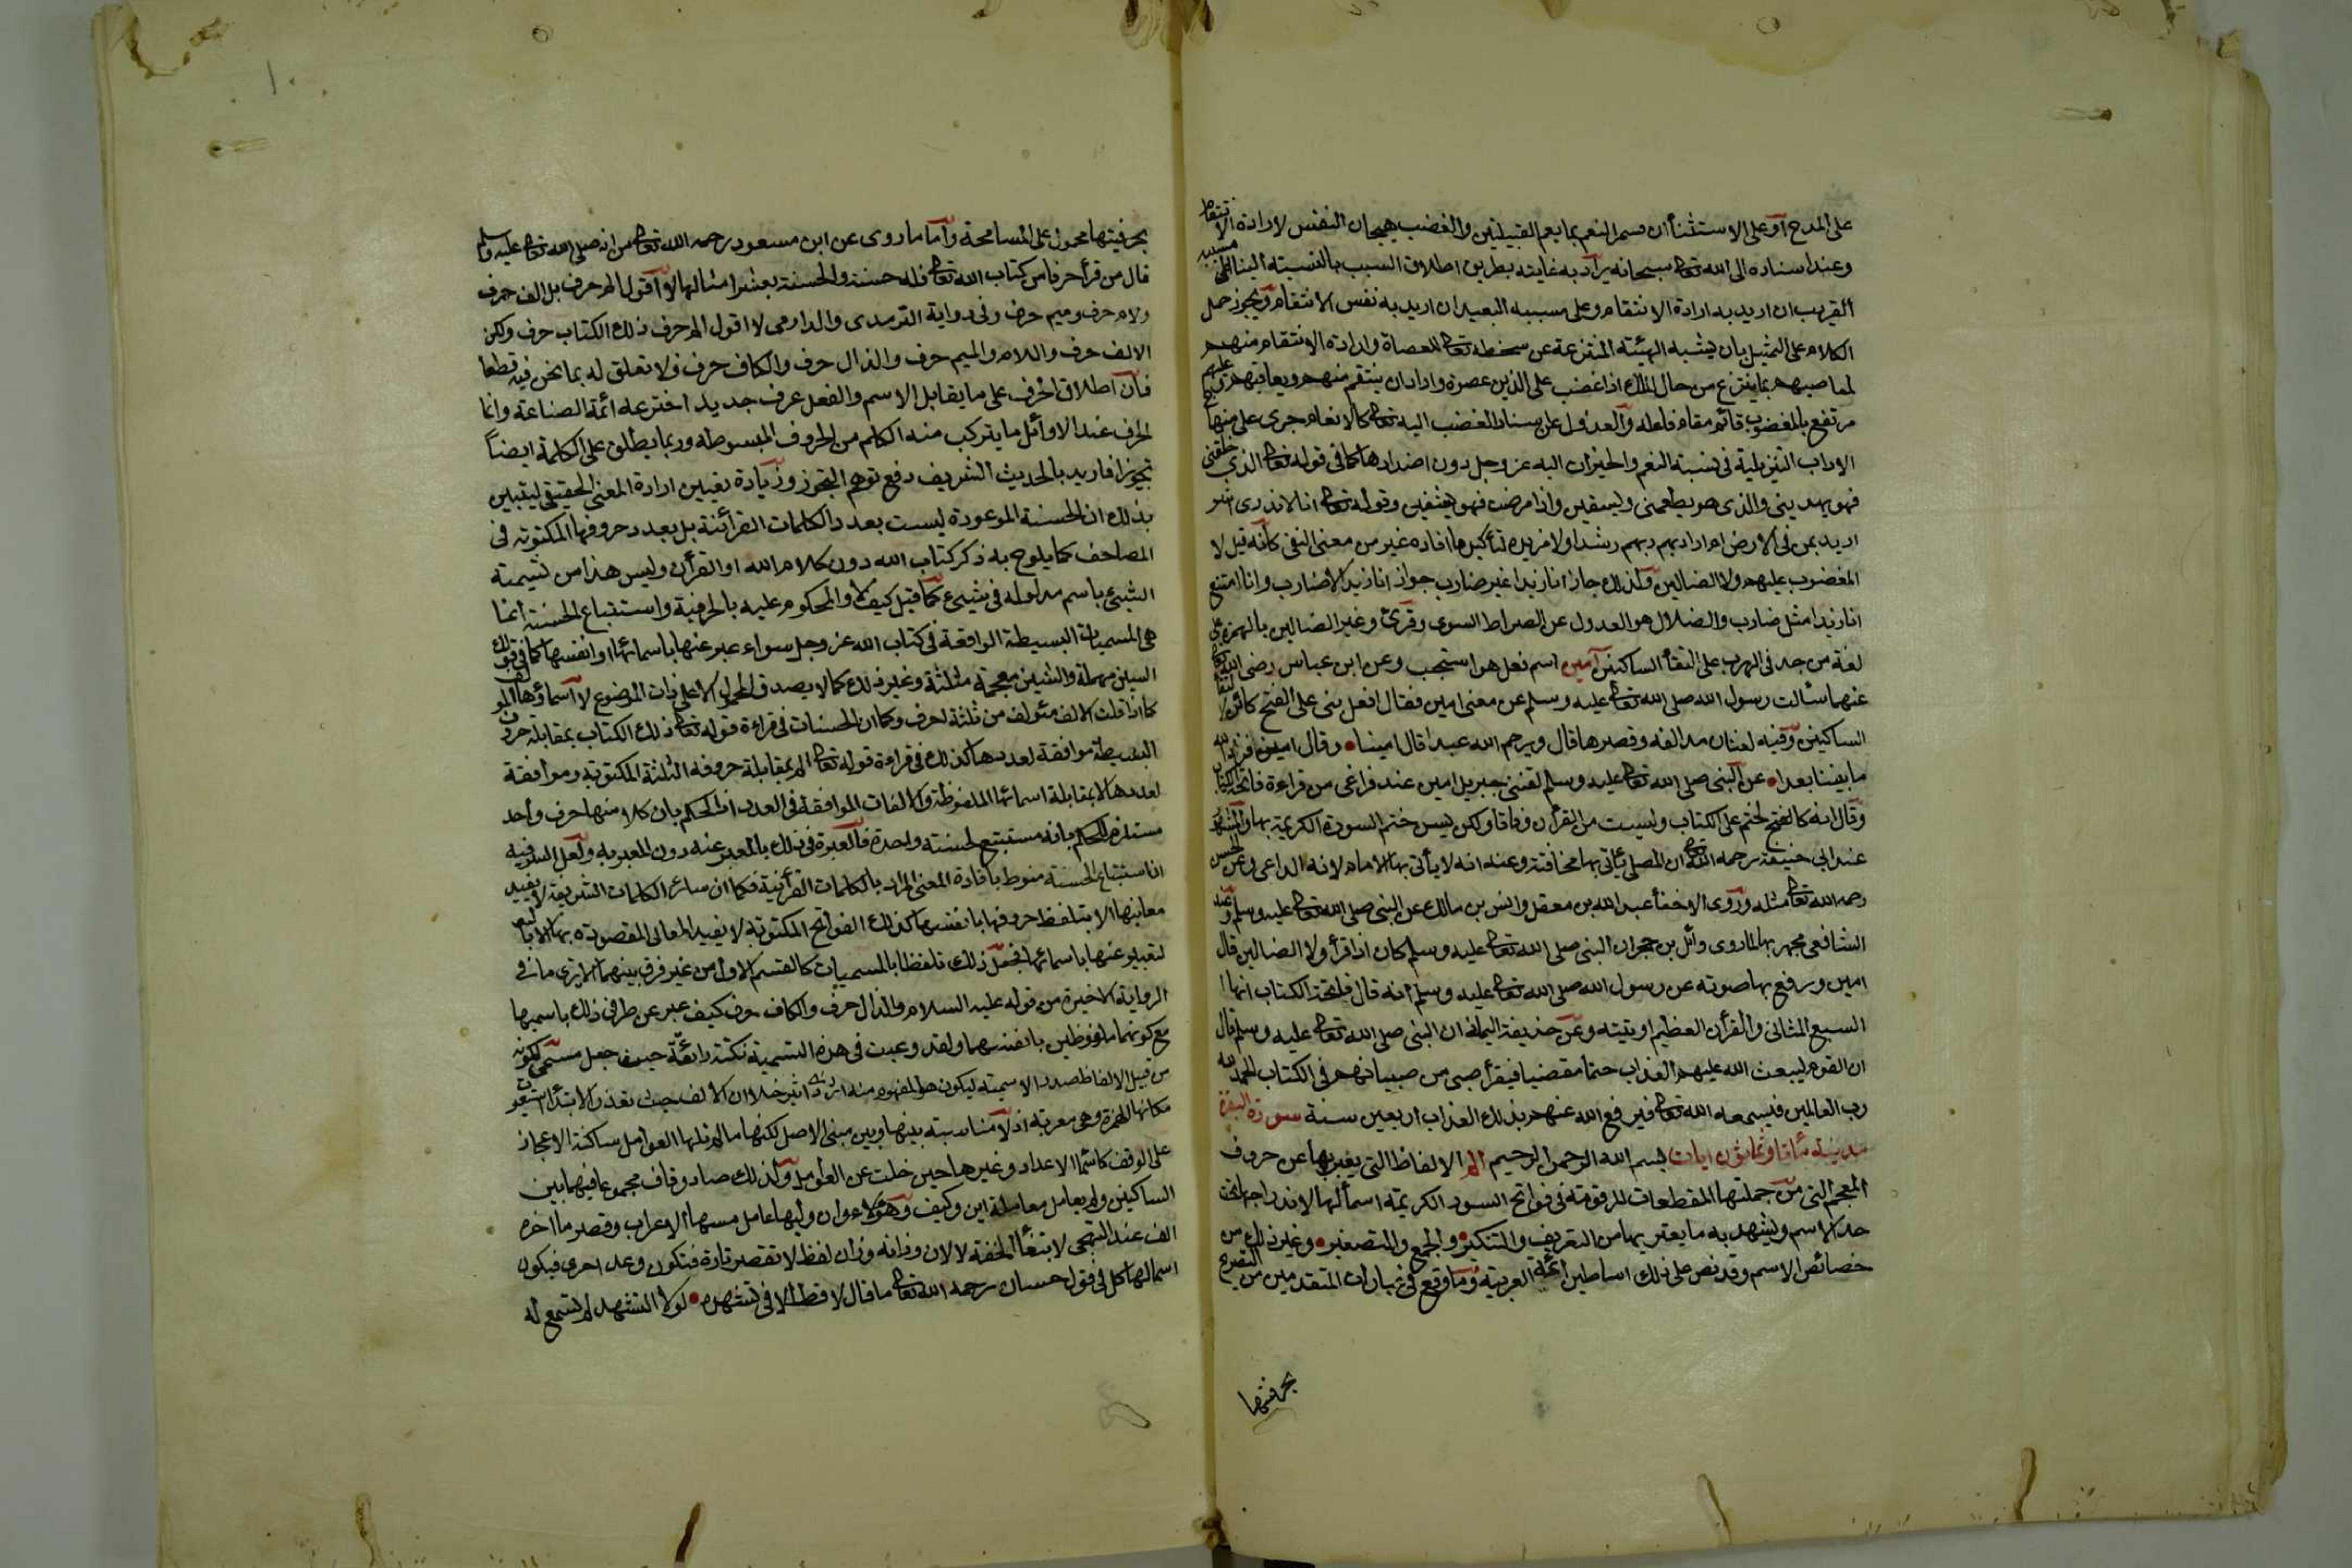 على المدح أو على الاستثنأ ان فسر النعم بما يعم القبيلتين والغضب هيجان النفس لارادة الانتقام
وعند اسناده الى الله تعا سبحانه يراد به غايته بطريق اطلاق السبب بالنسبة الينا على مسببه
القريب ان اريد به ارادة الانتقام وعلى مسببه البعيد ان اريد به نفس الانتقام ويجوز حمل
الكلام على التمثيل بان يشبه الهيئة المنتزعة عن سخطه تعا للعصاة وارادة الانتقام منهم
لمعاصيهم بما ينتزع من حال الملك اذا غضب على الذين عصوه واراد ان ينتقم منهم ويعاقبهم وعليهم
مرتفع بالمغضوب قائم مقام فاعله والعدول عن اسناد الغضب اليه تعا كالانعام جرى على منهاج
الاداب التنزيلية فى نسبة النعم والخيران اليه عز وجل دون اضدادها كما فى قوله تعا الذى خلقنى
فهو يهدينى والذى هو يطعمنى ويسقين واذا مرضت فهو يشفين وقوله تعا انا لا ندرى اشر
اريد بمن فى الارض ام اراد بهم ربهم رشدا ولا مزيدة لتأكيد ما افاده غير من معنى النفى كأنه قيل لا
المغضوب عليهم ولا الضالين ولذلك جاز انا زيدا غير ضارب جواز انا زيدا لا ضارب وانما امتنع
انا زيدا مثل ضارب والضلال هو العدول عن الصراط السوى وقرئ وغير الضالين بالهمزة على
لغة من جد فى الهرب على التقأ الساكنين آمين اسم فعل هو استجب وعن ابن عباس رضى الله تعا
عنهما سألت رسول الله صلى الله تعا عليه وسلم عن معنى امين فقال افعل بنى على الفتح كاين لالتقأ
الساكنين وفيه لغتان مد الفه وقصرها قال ويرحم الله عبدا قال امينا وقال امين فزاد الله
ما بيننا بعدا عن النبى صلى الله تعا عليه وسلم لقننى جبريل امين عند فراغى من قراءة فاتحة الكتاب
وقال انه كالختم على الكتاب وليست من القرأن وفاقا ولكن يسن ختم السورة الكريمة بها والمشهور
عند ابى حنيفة رحمه الله تعا ان المصلى يأتى بها مخافتة وعنه انه لا يأتى بها الامام لانه الداعى وعن الحسن
رحمه الله تعا مثله وروى الاخفأ عبد الله بن معقل وانس بن مالك عن النبى صلى الله تعا عليه وسلم وعند
الشافعى يجهر بها لما روى وائل بن حجر ان النبى صلى الله تعا عليه وسلم كان اذا قرأ ولا الضالين قال
امين ورفع بها صوته عن رسول الله صلى الله تعا عليه وسلم انه قال فاتحة الكتاب انها
السبع المثانى والقرأن العظيم اوتيته وعن حذيفة اليمان ان النبى صلى الله تعا عليه وسلم قال
ان القوم ليبعث الله عليهم العذاب حتما مقضيا فيقرأ صبى من صبيانهم فى الكتاب الحمد لله
رب العالمين فيسمعه الله تعا فيرفع الله عنهم بذلك العذاب اربعين سنة سورة البقرة
مدينة مأتا وثمانون ايات بسم الله الرحمن الرحيم الم الالفاظ التى يعبر بها عن حروف
المعجم التى من جملتها المقطعات المرقومة فى فواتح السور الكريمة اسمأ لها لاندراجها تحت
حد الاسم ويشهد به ما يعتريها من التعريف والتنكير والجمع والتصغير وغير ذلك من
خصائص الاسم وقد نص على ذلك اساطين ائمة العربية وما وقع فى عبارات المتقدمين من التصريح
بحرفيتها
١٠
بحرفيتها محمول على المسامحة وأما ما روى عن ابن مسعود رحمه الله تعا من انه صلى الله تعا عليه وسلم
قال من قرأ حرفا من كتاب الله تعا فله حسنة والحسنة بعشر امثالها لا أقول الم حرف بل الف حرف
ولام حرف وميم حرف وفى رواية الترمدى والدارمى لا اقول الم حرف ذلك الكتاب حرف ولكن
الالف حرف واللام والميم حرف والذال حرف والكاف حرف فلا تعلق له بما نحن فيه قطعا
فان اطلاق الحرف على ما يقابل الاسم والفعل عرف جديد اخترعه ائمة الصناعة وانما
الحرف عند الاوائل ما يتركب منه الكلم من الحروف المبسوطة وربما يطلق على الكلمة ايضاً
تجوزا فاريد بالحديث الشريف دفع توهم التجوز وزيادة تعيين ارادة المعنى الحقيقى ليتبين
بذلك ان الحسنة الموعودة ليست بعدد الكلمات القرأنية بل بعدد حروفها المكتوبة فى
المصاحف كما يلوح به ذكر كتاب الله دون كلام الله او القرأن وليس هذا من تسمية
الشيئ باسم مدلوله فى شيئ كما قيل كيف لا والمحكوم عليه بالحرفية واستتباع الحسنة انما
هى المسميات البسيطة الواقعة فى كتاب الله عز وجل سواء عبر عنها باسمائها او انفسها كما فى قولك
السين مهملة والشين معجمة مثلثة وغير ذلك كما لا يصدق المحمول الا على ذات الموضوع لا اسماؤها المؤلفة
كما اذا قلت الالف مئولف من ثلثة احرف وكما ان الحسنات فى قراءة قوله تعا ذلك الكتاب بمقابلة حروفه
البسيطة موافقة لعددها كذلك فى قراءة قوله تعا الم بمقابلة حروفه الثلثة المكتوبة وموافقة
لعددها لا بمقابلة اسمائها الملفوظة والالفات الموافقة فى العدد اذ الحكم بان كلا منها حرف واحد
مستلزم للحكم بانه مستتبع لحسنة واحدة فالعبرة فى ذلك بالمعبر عنه دون المعبر به ولعل السر فيه
ان استتباع الحسنة منوط بافادة المعنى المراد بالكلمات القرأنية فكما ان سائر الكلمات الشريفة لا يفيد
معانيها الا بتلفظ حروفها بانفسها كذلك الفواتح المكتوبة لا يفيد المعانى المقصودة بها الا بالتعبير
لتعبير عنها باسمائها فجعل ذلك تلفظا بالمسميات كالقسم الاول من غير فرق بينهما الا يرى ما فى
الرواية الاخيرة من قوله عليه السلام والذال حرف والكاف حرف كيف عبر عن طرفى ذلك باسميهما
مع كونهما ملفوظين بانفسهما ولقد روعيت فى هذه التسمية نكتة رائقة حيث جعل مسمى لكونه
من قبيل الالفاظ صدر الاسمية ليكون هو المفهوم منه اثر ذى اثير خلا ان الالف حيث تعذر الابتدأ استعيرت
مكانها الهمزة وهى معربة اذ لا مناسبة بينها وبين مبنى الاصل لكنها ما لم تلها العوامل ساكنة الاعجاز
على الوقف كاسمأ الاعداد وغيرها حين خلت عن العوامل ولذلك صاد وقاف مجموعا فيهما بين
الساكنين ولم يعامل معاملة اين وكيف وهؤلاء وان وليها عامل مسها الاعراب وقصر ما اخره
الف عند التهجى لابتغأ الخفة لا لان وزانه وزان لفظ لا تقصر تارة فتكون وعد اخرى فيكون
اسما لها كل فى قول حسان رحمه الله تعا ما قال لا قط الا فى تشهده لولا التشهد لم يستمع له